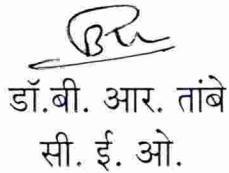 डॉ.बी. आर. तांबे
सी. ई. ओ.